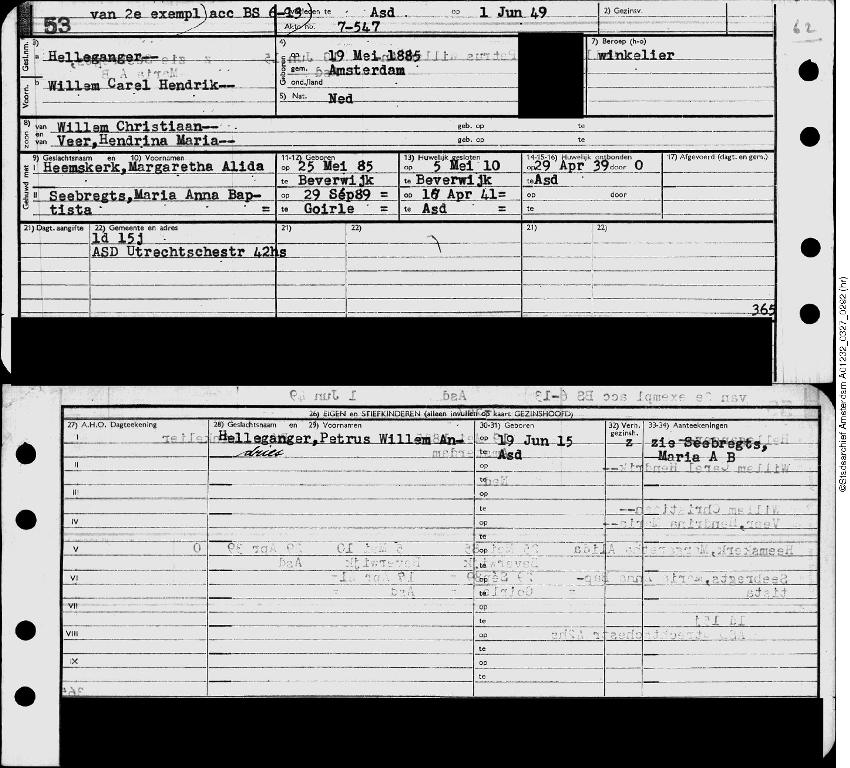 53 van 2e exempl) acc BS 6-13 Overleden te Asd op 1 Jun 49 2) Gezinsv.
Akte no. 7-547
62
Gesln.m. 3) a Helleganger-- 4) op 19 Mei 1885 7) Beroep (h-o)
gem. Amsterdam winkelier
Voorn. b Willem Carel Hendrik-- Geboren ond./land
5) Nat. Ned
8) zoon van Willem Christiaan-- geb. op te
en van Veer,Hendrina Maria-- geb. op te
9) Geslachtsnaam en 10) Voornamen 11-12) Geboren 13) Huwelijk gesloten 14-15-16) Huwelijk ontbonden 17) Afgevoerd (dagt. en gem.)
Gehuwd met I Heemskerk,Margaretha Alida op 25 Mei 85 op 5 Mei 10 op 29 Apr 39 door O
te Beverwijk te Beverwijk te Asd
II Seebregts,Maria Anna Bap- op 29 Sep89 = op Apr 41= op door
tista = te Goirle = te Asd = te
21) Dagt. aangifte 22) Gemeente en adres 21) 22) 21) 22)
ld 15j
ASD Utrechtschestr 42hs
365
26) EIGEN en STIEFKINDEREN (alleen invullen op kaart GEZINSHOOFD)
27) A.H.O. Dagteekening 28) Geslachtsnaam en 29) Voornamen 30-31) Geboren 32) Verh. gezinsh. 33-34) Aanteekeningen
I Helleganger,Petrus Willem An- op 19 Jun 15 z zie Seebregts,
dries te Asd Maria A B
II op
te
III op
te
IV op
te
V op
te
VI op
te
VII op
te
VIII op
te
IX op
te
©Stadsarchief Amsterdam A01232_0327_0292 (nr)